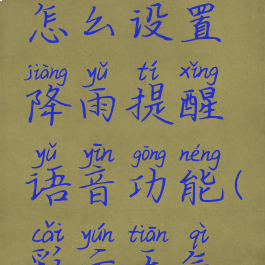 怎么设置
jiàng yǔ tí xǐng
降雨提醒
yǔ yīn gōng néng
语音功能(
cǎi yún tiān qì
彩云天气